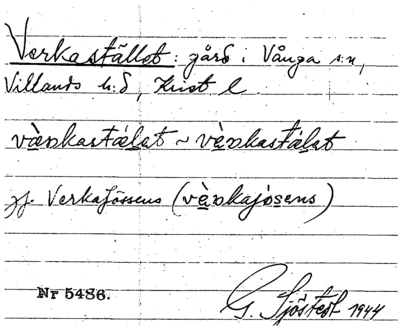 Verkastället: gård i Vånga s:n,
Villands h:d, Krist l.
vàrkastälət ~ vàrkastälət
jf. Verkajössens (vàrkajösens)
Nr 5486.
G. Sjöstedt 1944